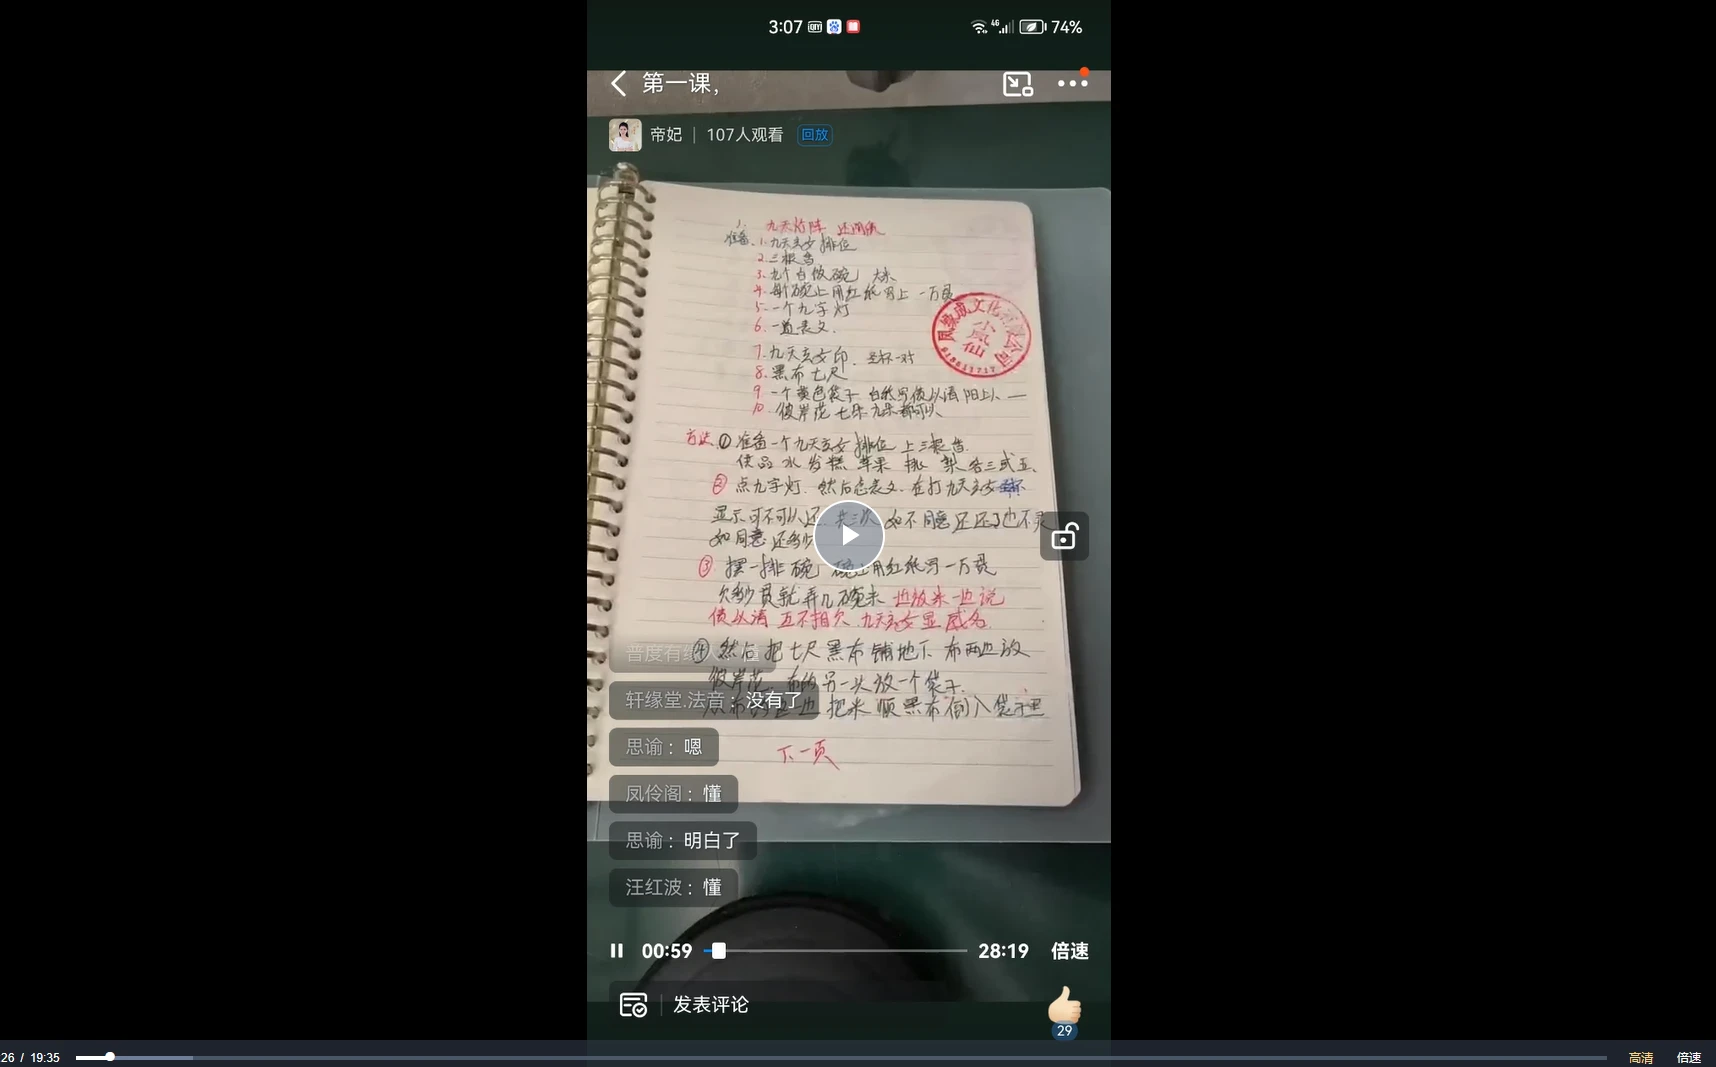 3:07
74%
第一课，
帝妃 | 107人观看 回放
1. 九天灯阵 还阴债
准备、1.九天玄女排位
2.三根香
3.九个白饭碗 大米
4.每碗上用红纸写上 一万贯
5.一个九字灯
6.一道表文.
7.九天玄女印. 圣杯一对
8.黑布七尺
9 一个黄色袋子 白纸写债以清 阳上人 —
10. 彼岸花 七朵九朵都可以
小凤仙
方法 ① 准备一个九天玄女排位 上三根香.
供品 水 发糕 苹果 桃 梨 各三或五、
② 点九字灯. 然后念表文. 在打九天玄女圣杯
显示可不可以还. 共三次 如不同意还 还了也不灵
如同意 还多少
③ 摆一排碗 碗上用红纸写一万贯
欠多少贯就弄几碗米 边放米一边说
债以清 互不相欠 九天玄女显威名.
④ 然后把七尺黑布铺地下 布两边放
彼岸花 布的另一头放一个袋子.
把米顺黑布倒入袋子里
下一页
轩缘堂.法音：没有了
思谕：嗯
凤伶阁：懂
思谕：明白了
汪红波：懂
00:59
28:19 倍速
发表评论
29
26 / 19:35
高清 倍速